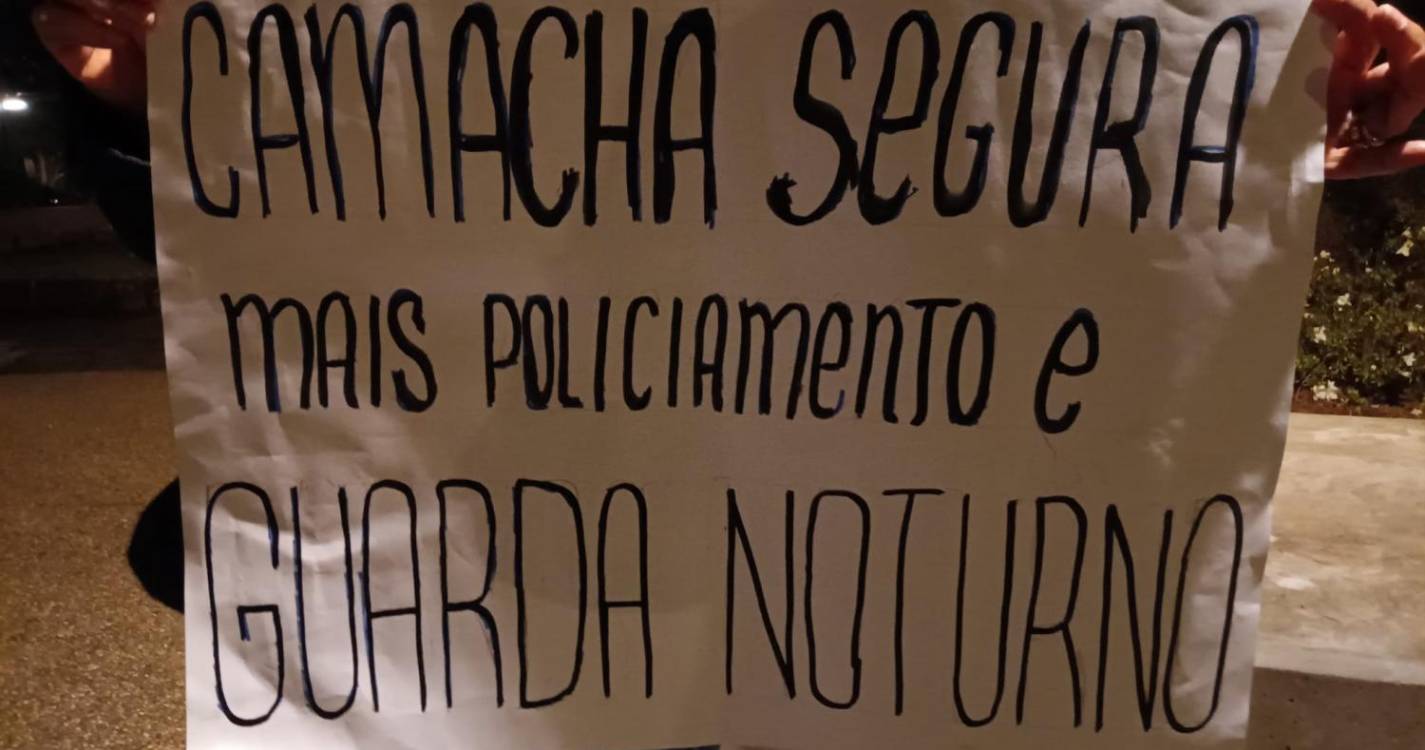 CAMACHA SEGURA
MAIS POLICIAMENTO E
GUARDA NOTURNO